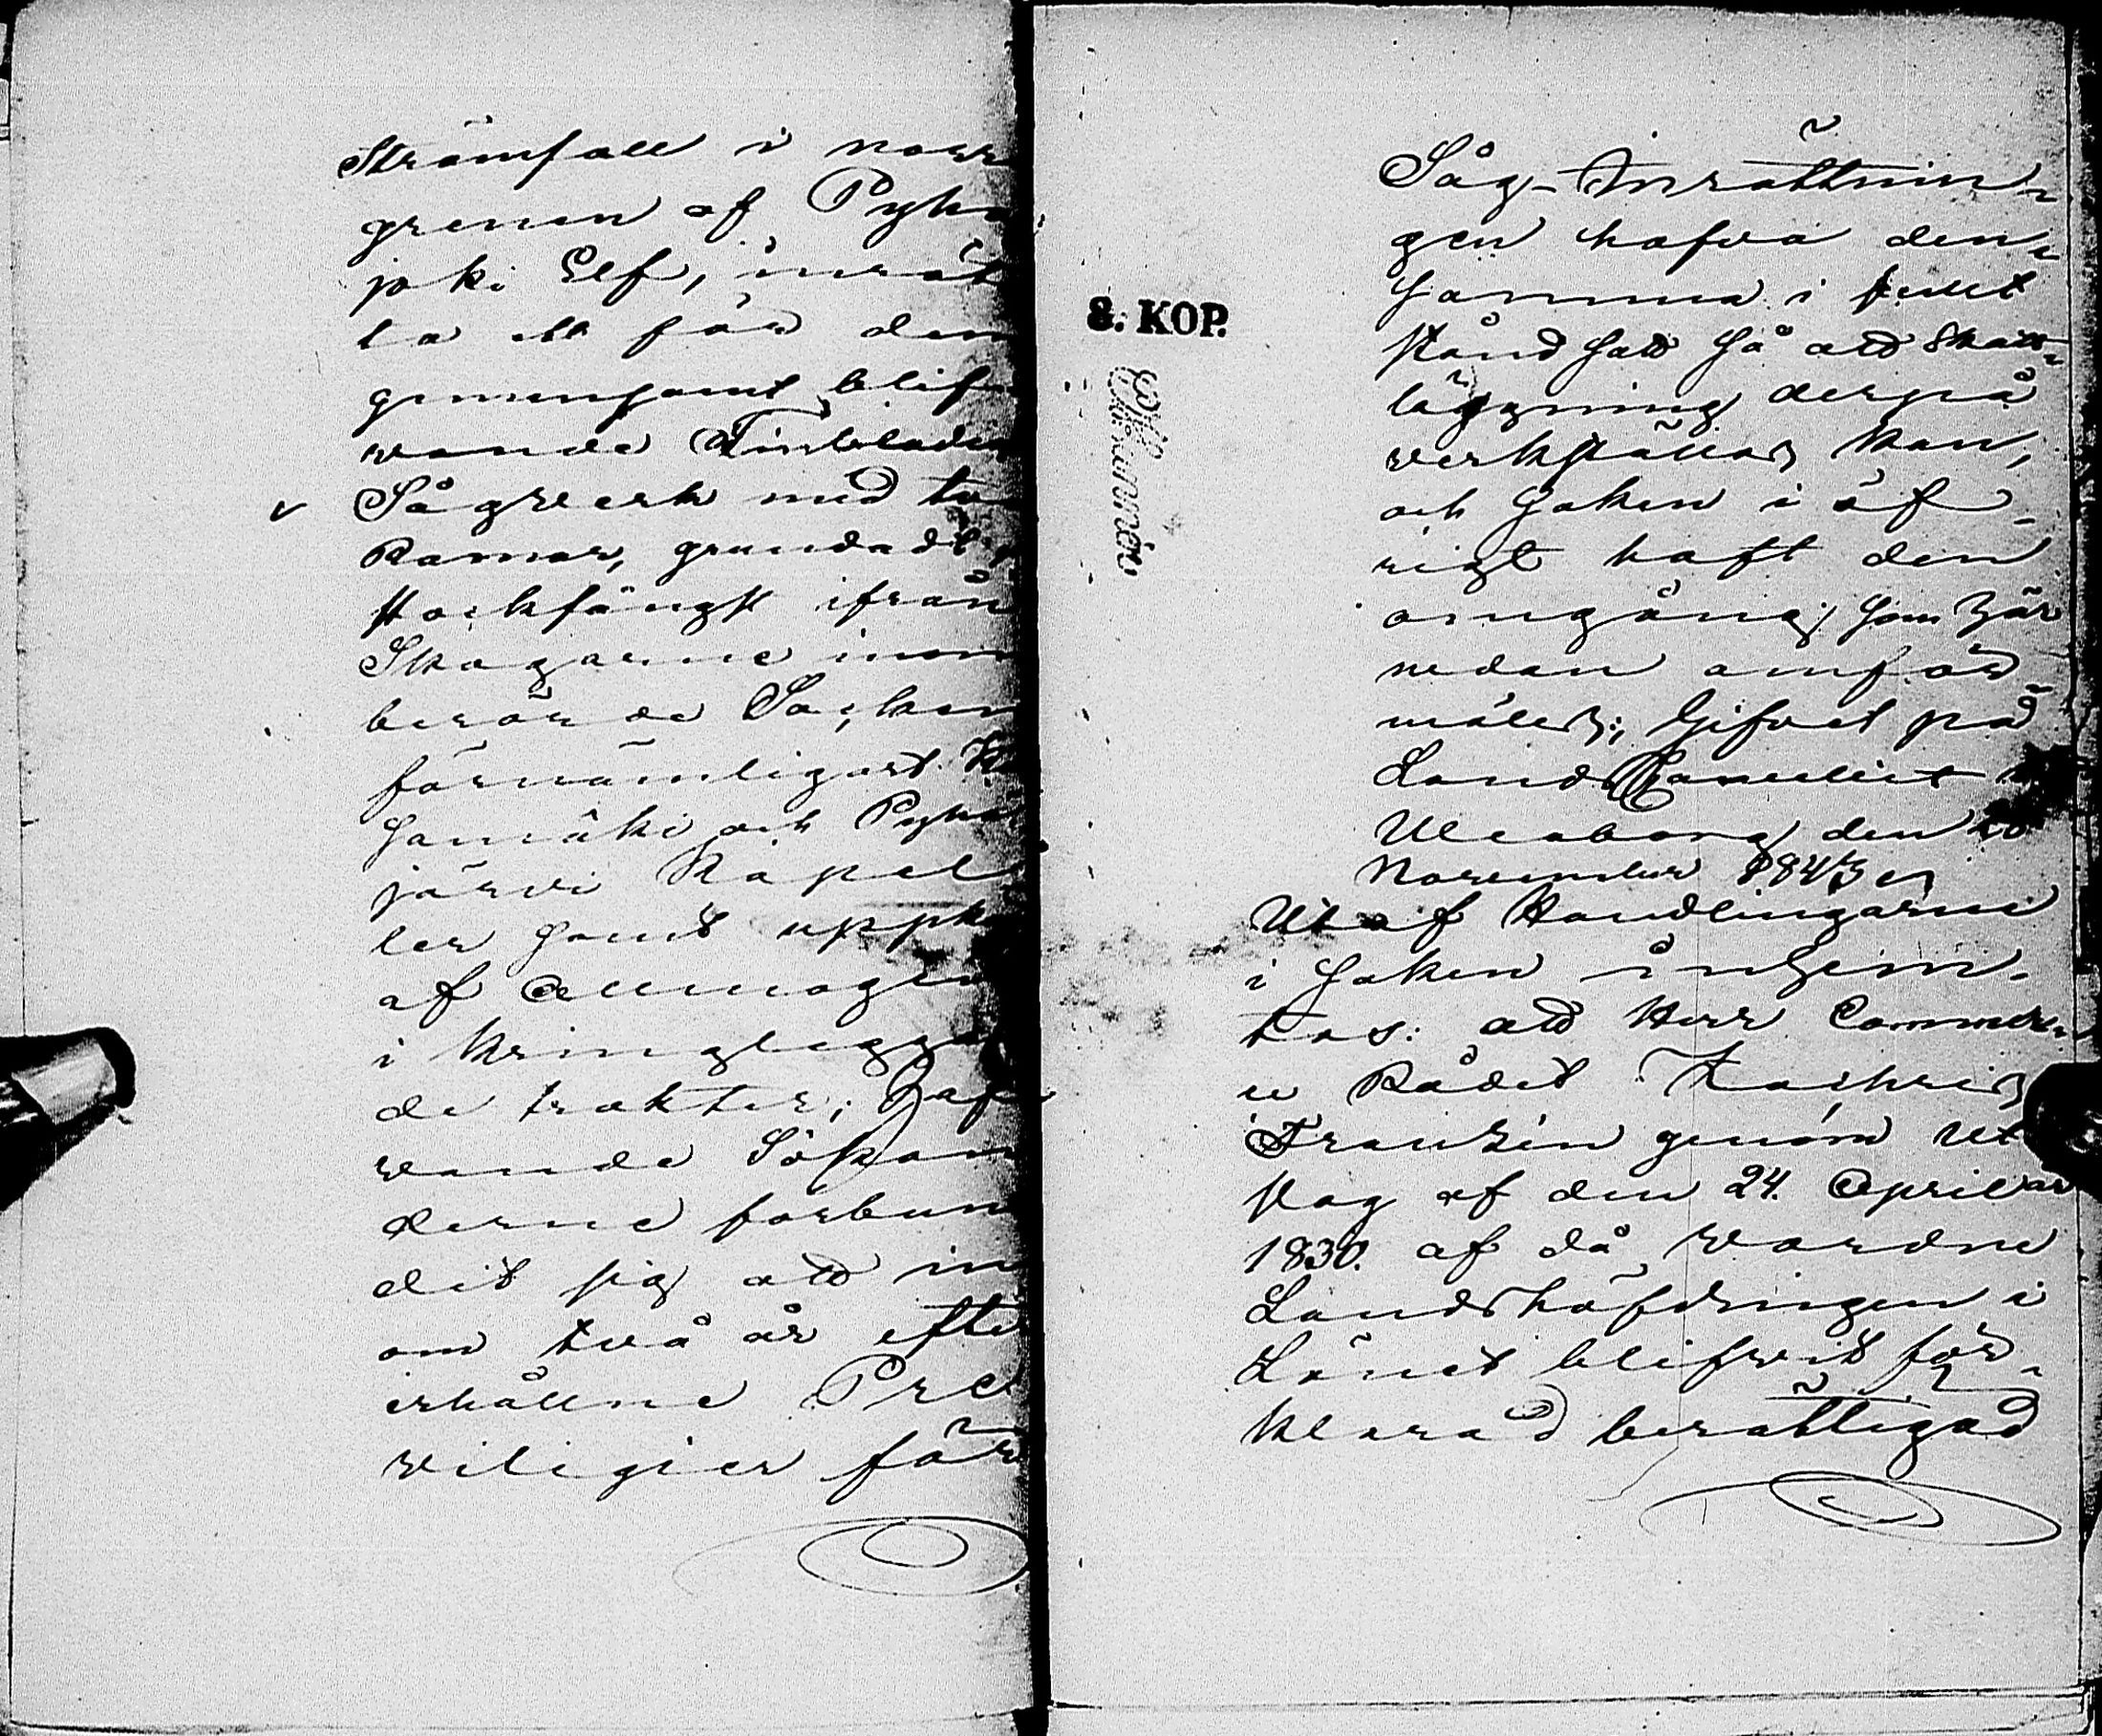 Strömfall i norr
grenen af Pyhä
joki Elf, inrät
ta ett för dem
gemensamt blif
vande Finbladig
Sågverk med två
Ramar, grundadt
Stockfångst ifrån
Skogarne inom
berörde Socken
förnämligast
samäki och Pyhä
järvi Kapel
ler samt uppkö
af Allmogen
i kringliggan
de trakter; Haf
vande Sökan
derne förbun
dit sig att in
om två år efter
erhållne Pre
viligier för
Såg-Inrättnin-
gen hafva den-
samma i sådt
stånd satt så att Skatt-
läggning derpå
verkställas kan,
och Saken i öf-
rigt haft den
omgång, som här
nedan omför-
mäles; Gifvet på
Lands Cancelliet
Uleaborg den 20
November 1843.
Utaf Handlingarne
i Saken inhem-
tas: att Herr Commer-
ce Rådet Zachris
Franzén genom Ut-
slag af den 24. April
1830. af då varande
Landshöfdingen i
Länet blifvit för-
klarad berättigad
8. KOP.